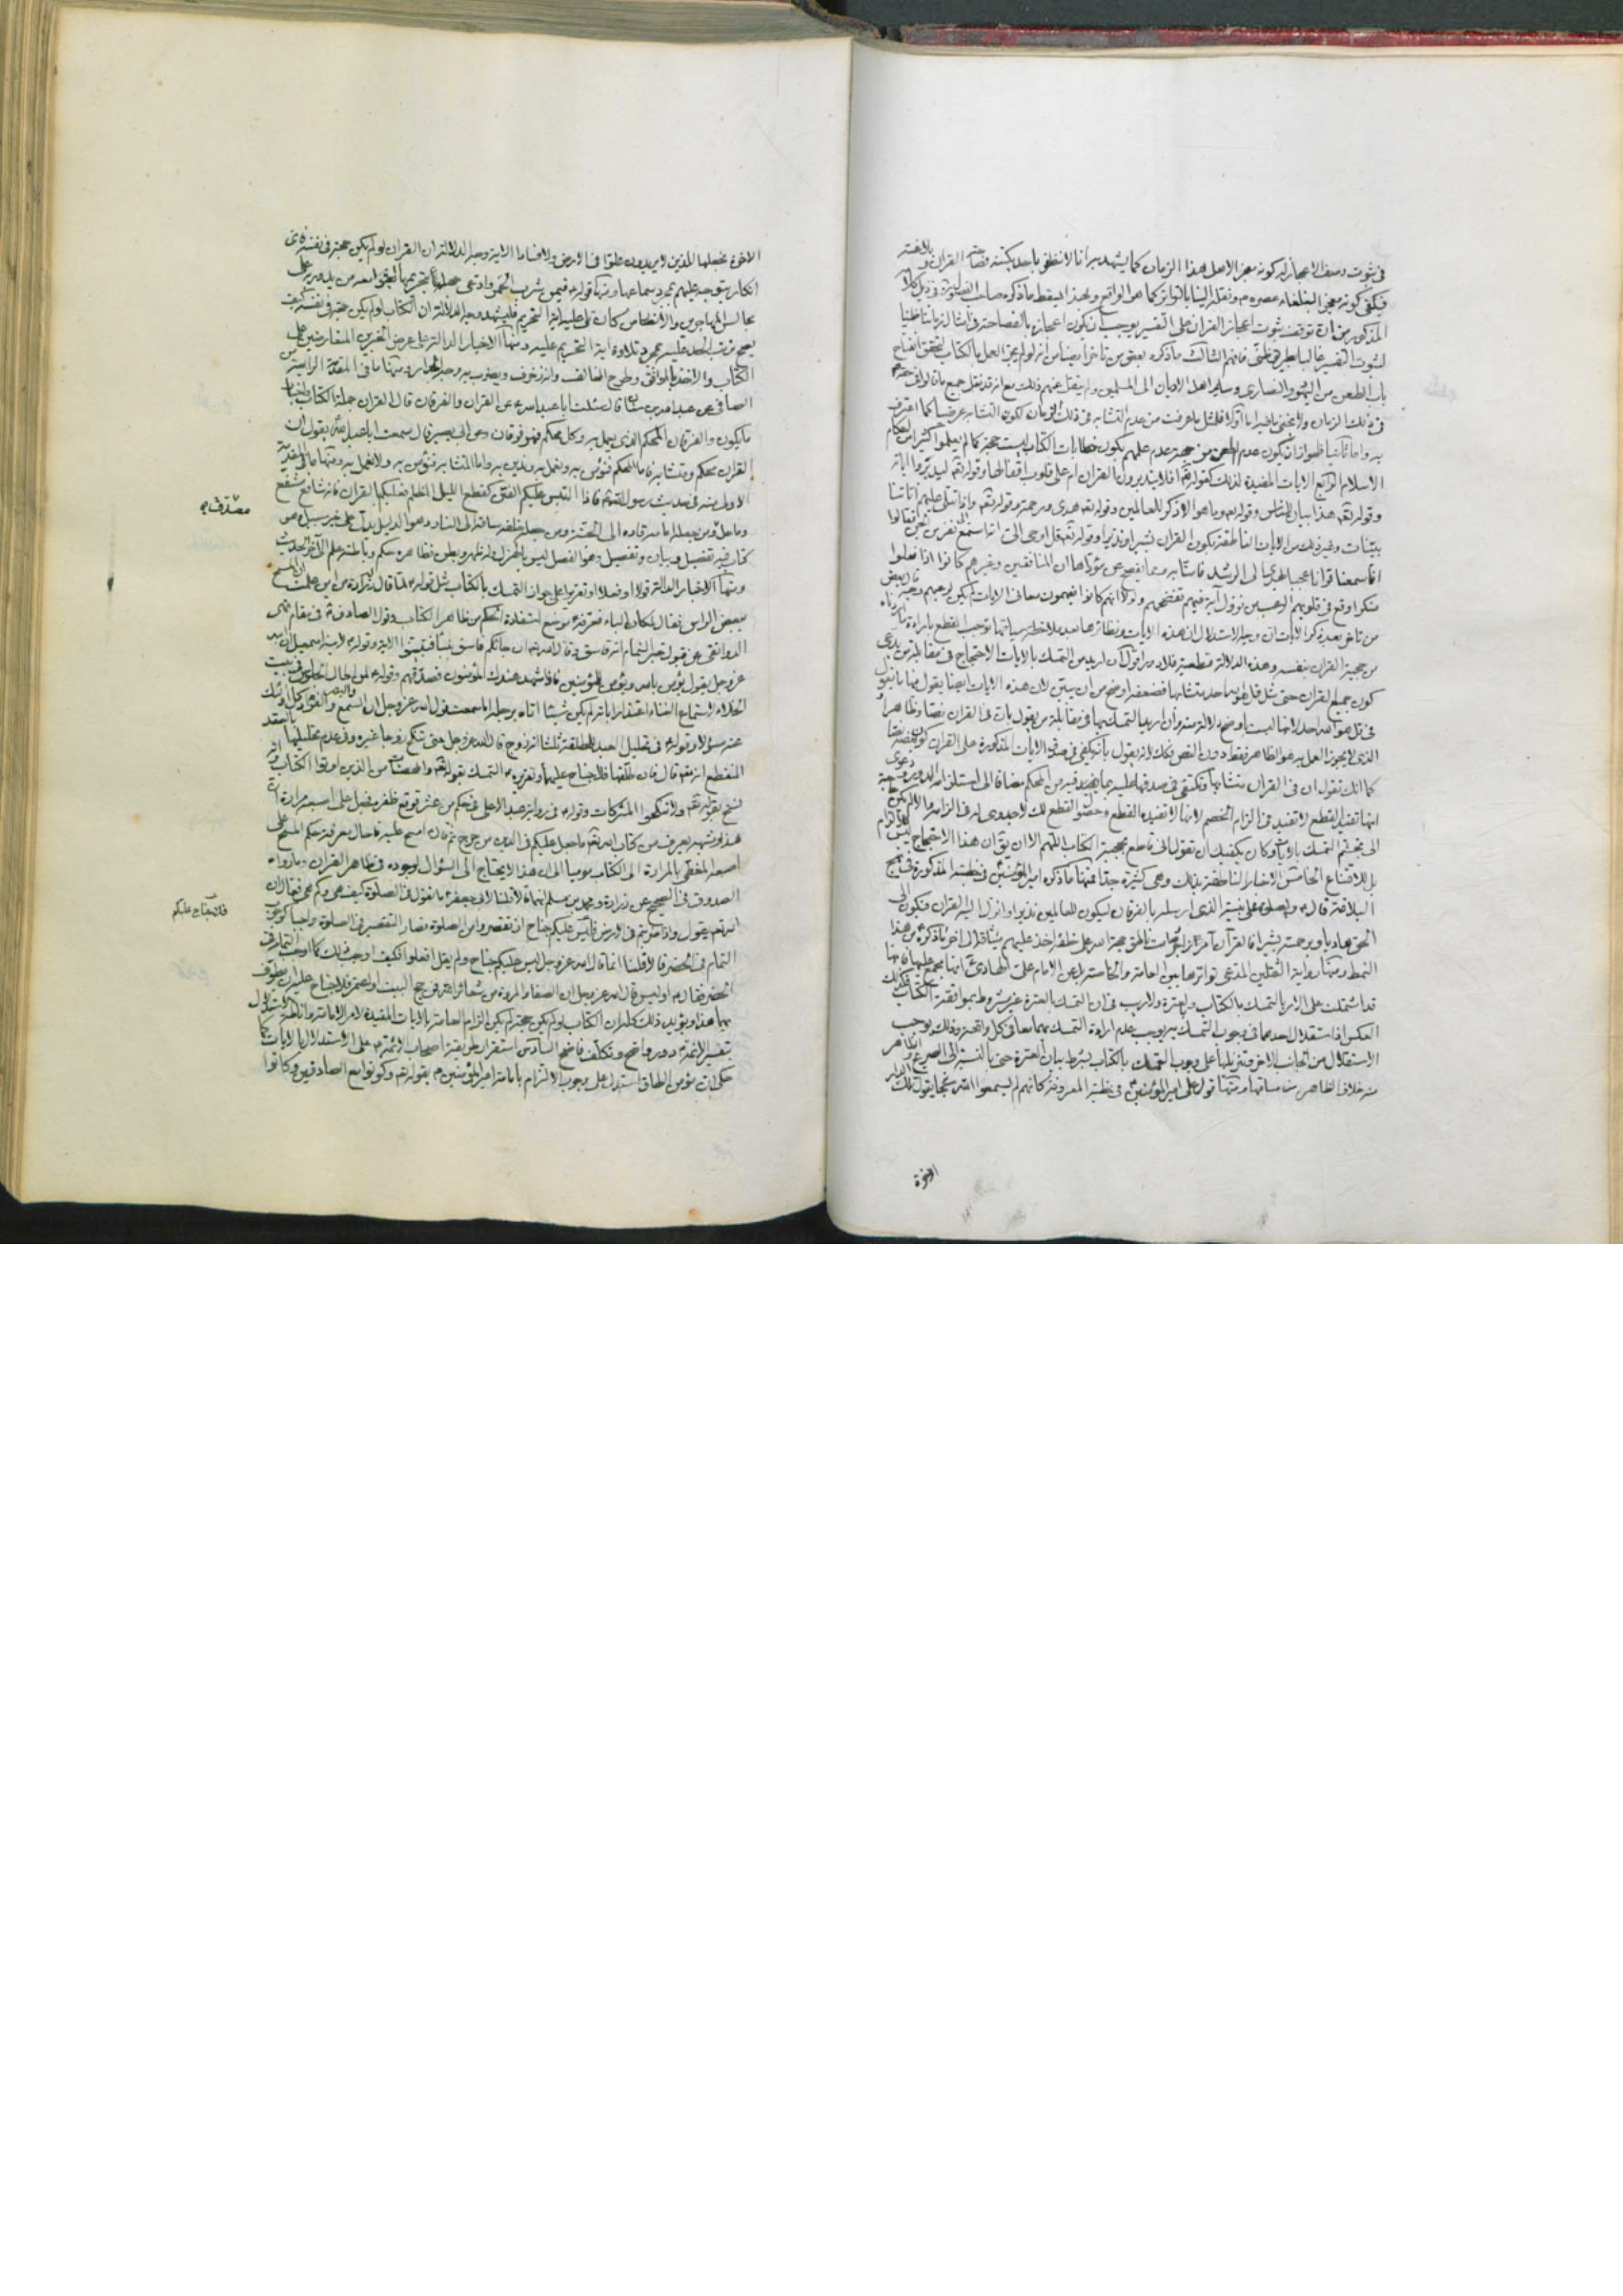 في ثبوت وصف الاعجاز له كونه معجزا لاهل هذا الزمان كما يشهد به انا لا نطلق باحد يكتنه فصاحة القران و بلاغته
فيكفي كونه معجزا لبلغاء عصره ص ونقله الينا بالتواتر كما هو الواقع وبهذا يسقط ما ذكره صاحب في ذيل كلامه
المذكور من ان توقف ثبوت اعجاز القران على التفسير يوجب ان يكون اعجازه بالفصاحة في امثال زماننا ظنيا
لثبوت التفسير غالبا بطريق ظني فافهم الثالث ما ذكره بعض من تاخر ايضا من انه لو لم يجز العمل بالكتاب لتحقق انفتاح
باب الطعن من اليهود والنصارى وساير اهل الاديان الى المسلمين ولم ينقل عنهم ذلك مع انه قد نقل جميع ما
في ذلك الزمان ولا يخفى ما فيه اما اولا فلمثل ما عرفت من عدم التشابه في ذلك الزمان لكون التشابه عرضيا كما اعترف
به واما ثانيا فلجواز ان يكون عدم الطعن من جهة عدم علمهم بكون خطابات الكتاب ليست حجة كما لم يعلموا كثيرا من احكام
الاسلام الرابع الايات المفيدة لذلك كقوله تعالى افلا يتدبرون القران ام على قلوب اقفالها وقوله تعالى ليدبروا اياته
وقوله تعالى هذا بيان للناس وقوله تعالى وما هو الا ذكر للعالمين وقوله تعالى هدى ورحمة وقوله تعالى واذا تتلى عليهم اياتنا
بينات وغير ذلك من الايات الناطقة بكون القران بشيرا ونذيرا وقوله تعالى قل اوحي الي انه استمع نفر من الجن فقالوا
انا سمعنا قرانا عجبا يهدي الى الرشد فامنا به ومما يفصح عن مؤداها ان المنافقين وغيرهم كانوا اذا فعلوا
منكرا وقع في قلوبهم الرعب من نزول اية فيهم تفضحهم ولولا انهم كانوا يفهمون معاني الايات لم يكن لرعبهم وجه
من تاخر بعد ذكر الايات ان وجه الاستدلال ان هذه الايات ونظائرها بعد ملاحظة سياقها توجب القطع بارادة
من حجية القران بنفسه وهذه الدلالة قطعية فلا دور اقول ان اريد من التمسك بالايات الاحتجاج في مقابلة من يدعي
كون جميع القران حتى مثل قل هو الله احد متشابها فضعفه اوضح من ان يبين لان هذه الايات ايضا يقول فيها ما يقول
في قل هو الله احد لانها ليست باوضح دلالة منه وان اريد التمسك بها في مقابلة من يقول بان في القران نصا وظاهرا و
الذي لا يجوز العمل به هو الظاهر فقط دون النص فكذلك لانه يقول بانه يكفي في صدق الايات المذكورة على القران كون بعضه نصا
كما انك تقول ان في القران متشابها وتكتفي في صدقها عليه بما يوجد فيه من المحكم مضافا الى استلزامه الدور
انها تفيد القطع لا تفيد في الزام الخصم لانها لا تفيده القطع وحصول القطع لك لا جدوى له في الزامه
الى تجشم التمسك بالايات وكان يكفيك ان تقول اني قاطع بحجية الكتاب اللهم الا ان يقال ان هذا الاحتجاج ليس للالزام
بل للاقناع الخامس الاخبار الناطقة بذلك وهي كثيرة جدا فمنها ما ذكره امير المؤمنين ع في خطبته المذكورة في نهج
البلاغة قال ع والصلوة على نبيه الذي ارسله بالفرقان ليكون للعالمين نذيرا وانزل اليه القران فيكون الى
الحق هاديا وبرحمته بشيرا فالقران آمر زاجر وصامت ناطق حجة الله على خلقه اخذ عليهم ميثاقه الى اخر ما ذكره من هذا
النمط ومنها رواية الثقلين المدعى تواترها بين العامة والخاصة عن الامام علي الهادي ع انها مجمع عليها فانها
قد اشتملت على الامر بالتمسك بالكتاب والعترة ولا ريب في ان التمسك بالعترة غير مشروط بموافقة الكتاب فكذلك
العكس اذ استقلال احدهما في وجوب التمسك به يوجب عدم ارادة التمسك بهما معا في كل واقعة وذلك يوجب
الاستقلال من الجانب الاخر وتنزيلها على وجوب التمسك بالكتاب بشرط بيان العترة حتى بالنسبة الى الصريح والظاهر
منه خلاف الظاهر من مساقها ومنها قول علي امير المؤمنين ع في خطبته المعروفة كانهم لم يسمعوا الله سبحانه يقول تلك الدار
الاخرة
الاخرة نجعلها للذين لا يريدون علوا في الارض ولا فسادا الاية وجه الدلالة ان القران لو لم يكن حجة في نفسه
انكار يتوجه عليهم بمجرد سماعها ومنها قوله ع فيمن شرب الخمر وادعى جهله بتحريمها ابعثوا معه من يدور به على
مجالس المهاجرين والانصار من كان تلى عليه اية التحريم فليشهد وجه الدلالة ان الكتاب لو لم يكن حجة في نفسه كيف
يصح ترتب الحد عليه بمجرد تلاوة اية التحريم عليه ومنها الاخبار الدالة على عرض الخبرين المتعارضين على
الكتاب والاخذ بالموافق وطرح المخالف وانه زخرف ويضرب به وجه الجدار ومنها ما في المقدمة الرابعة من
الصافي عن عبد الله بن سنان قال سئلت ابا عبد الله ع عن القران والفرقان قال القران جملة الكتاب واخبار
ما يكون والفرقان المحكم الذي يعمل به وكل محكم فهو فرقان وعن ابي بصير قال سمعت ابا عبد الله ع يقول ان
القران محكم ومتشابه فاما المحكم فنؤمن به ونعمل به وندين به واما المتشابه فنؤمن به ولا نعمل به ومنها ما في المقدمة
الاولى منه في حديث رسول الله ص فاذا التبس عليكم الفتن كقطع الليل المظلم فعليكم بالقران فانه شافع مشفع
وماحل ومن جعله امامه قاده الى الجنة ومن جعله خلفه ساقه الى النار وهو الدليل يدل على خير سبيل وهو
مصدق
كتاب فيه تفصيل وبيان وتحصيل وهو الفصل ليس بالهزل وله ظهر وبطن فظاهره حكم وباطنه علم الى اخر الحديث
ومنها الاخبار الدالة قولا وفعلا وتقريرا على جواز التمسك بالكتاب مثل قوله ع لما قال زرارة من اين علمت ان المسح
ببعض الراس فقال لمكان الباء فعرفه ع موضع استفادة الحكم من ظاهر الكتاب وقول الصادق ع في مقام نهي
الدوانقي عن قبول خبر النمام انه فاسق وقال الله تعالى ان جاءكم فاسق بنبا فتبينوا الاية وقوله ع لابنه اسمعيل ان الله
عز وجل يقول يؤمن بالله ويؤمن للمؤمنين فاذا شهد عندك المؤمنون فصدقهم وقوله ع لمن اطال الجلوس في بيت
الخلاء لاستماع الغناء اعتذارا بانه لم يكن شيئا اتاه برجله اما سمعت قول الله عز وجل ان السمع والبصر والفؤاد كل اولئك
عنه مسؤلا وقوله ع في تحليل العبد للمطلقة ثلثا انه زوج قال الله عز وجل حتى تنكح زوجا غيره وفي عدم تحليلها بالعقد
المنقطع انه تعالى قال فان طلقها فلا جناح عليهما وتقريره ع التمسك بقوله تعالى والمحصنات من الذين اوتوا الكتاب وانه
نسخ بقوله تعالى ولا تنكحوا المشركات وقوله ع في رواية عبد الاعلى في حكم من عثر فوقع ظفره فجعل على اصبعه مرارة ان
هذا وشبهه يعرف من كتاب الله تعالى ما جعل عليكم في الدين من حرج ثم قال امسح عليه فاحال معرفة حكم المسح على
اصبعه المغطى بالمرارة الى الكتاب موميا الى ان هذا لا يحتاج الى السؤال لوجوده في ظاهر القران وما رواه
الصدوق في الصحيح عن زرارة ومحمد بن مسلم انهما قالا قلنا لابي جعفر ع ما تقول في الصلوة في السفر كيف هي وكم هي فقال ان
الله تعالى يقول واذا ضربتم في الارض فليس عليكم جناح ان تقصروا من الصلوة فصار التقصير في الصلوة واجبا كوجوب
فلا جناح عليكم
التمام في الحضر قالا قلنا انما قال الله عز وجل ليس عليكم جناح ولم يقل افعلوا فكيف اوجب ذلك كما اوجب التمام في
الحضر فقال ع اوليس قال الله عز وجل ان الصفا والمروة من شعائر الله فمن حج البيت او اعتمر فلا جناح عليه ان يطوف
بهما هذا ويؤيد ذلك كله ان الكتاب لو لم يكن حجة لم يكن الزام العامة بالايات المفيدة لامر الامامة
بتفسير الائمة ع دور واضح وتكلف فاضح السادس استقرار طريقة اصحاب الائمة ع على الاستدلال بالايات كما
حكي ان مؤمن الطاق استدل على وجوب الالتزام بامامة امير المؤمنين ع بقوله تعالى وكونوا مع الصادقين وكانوا